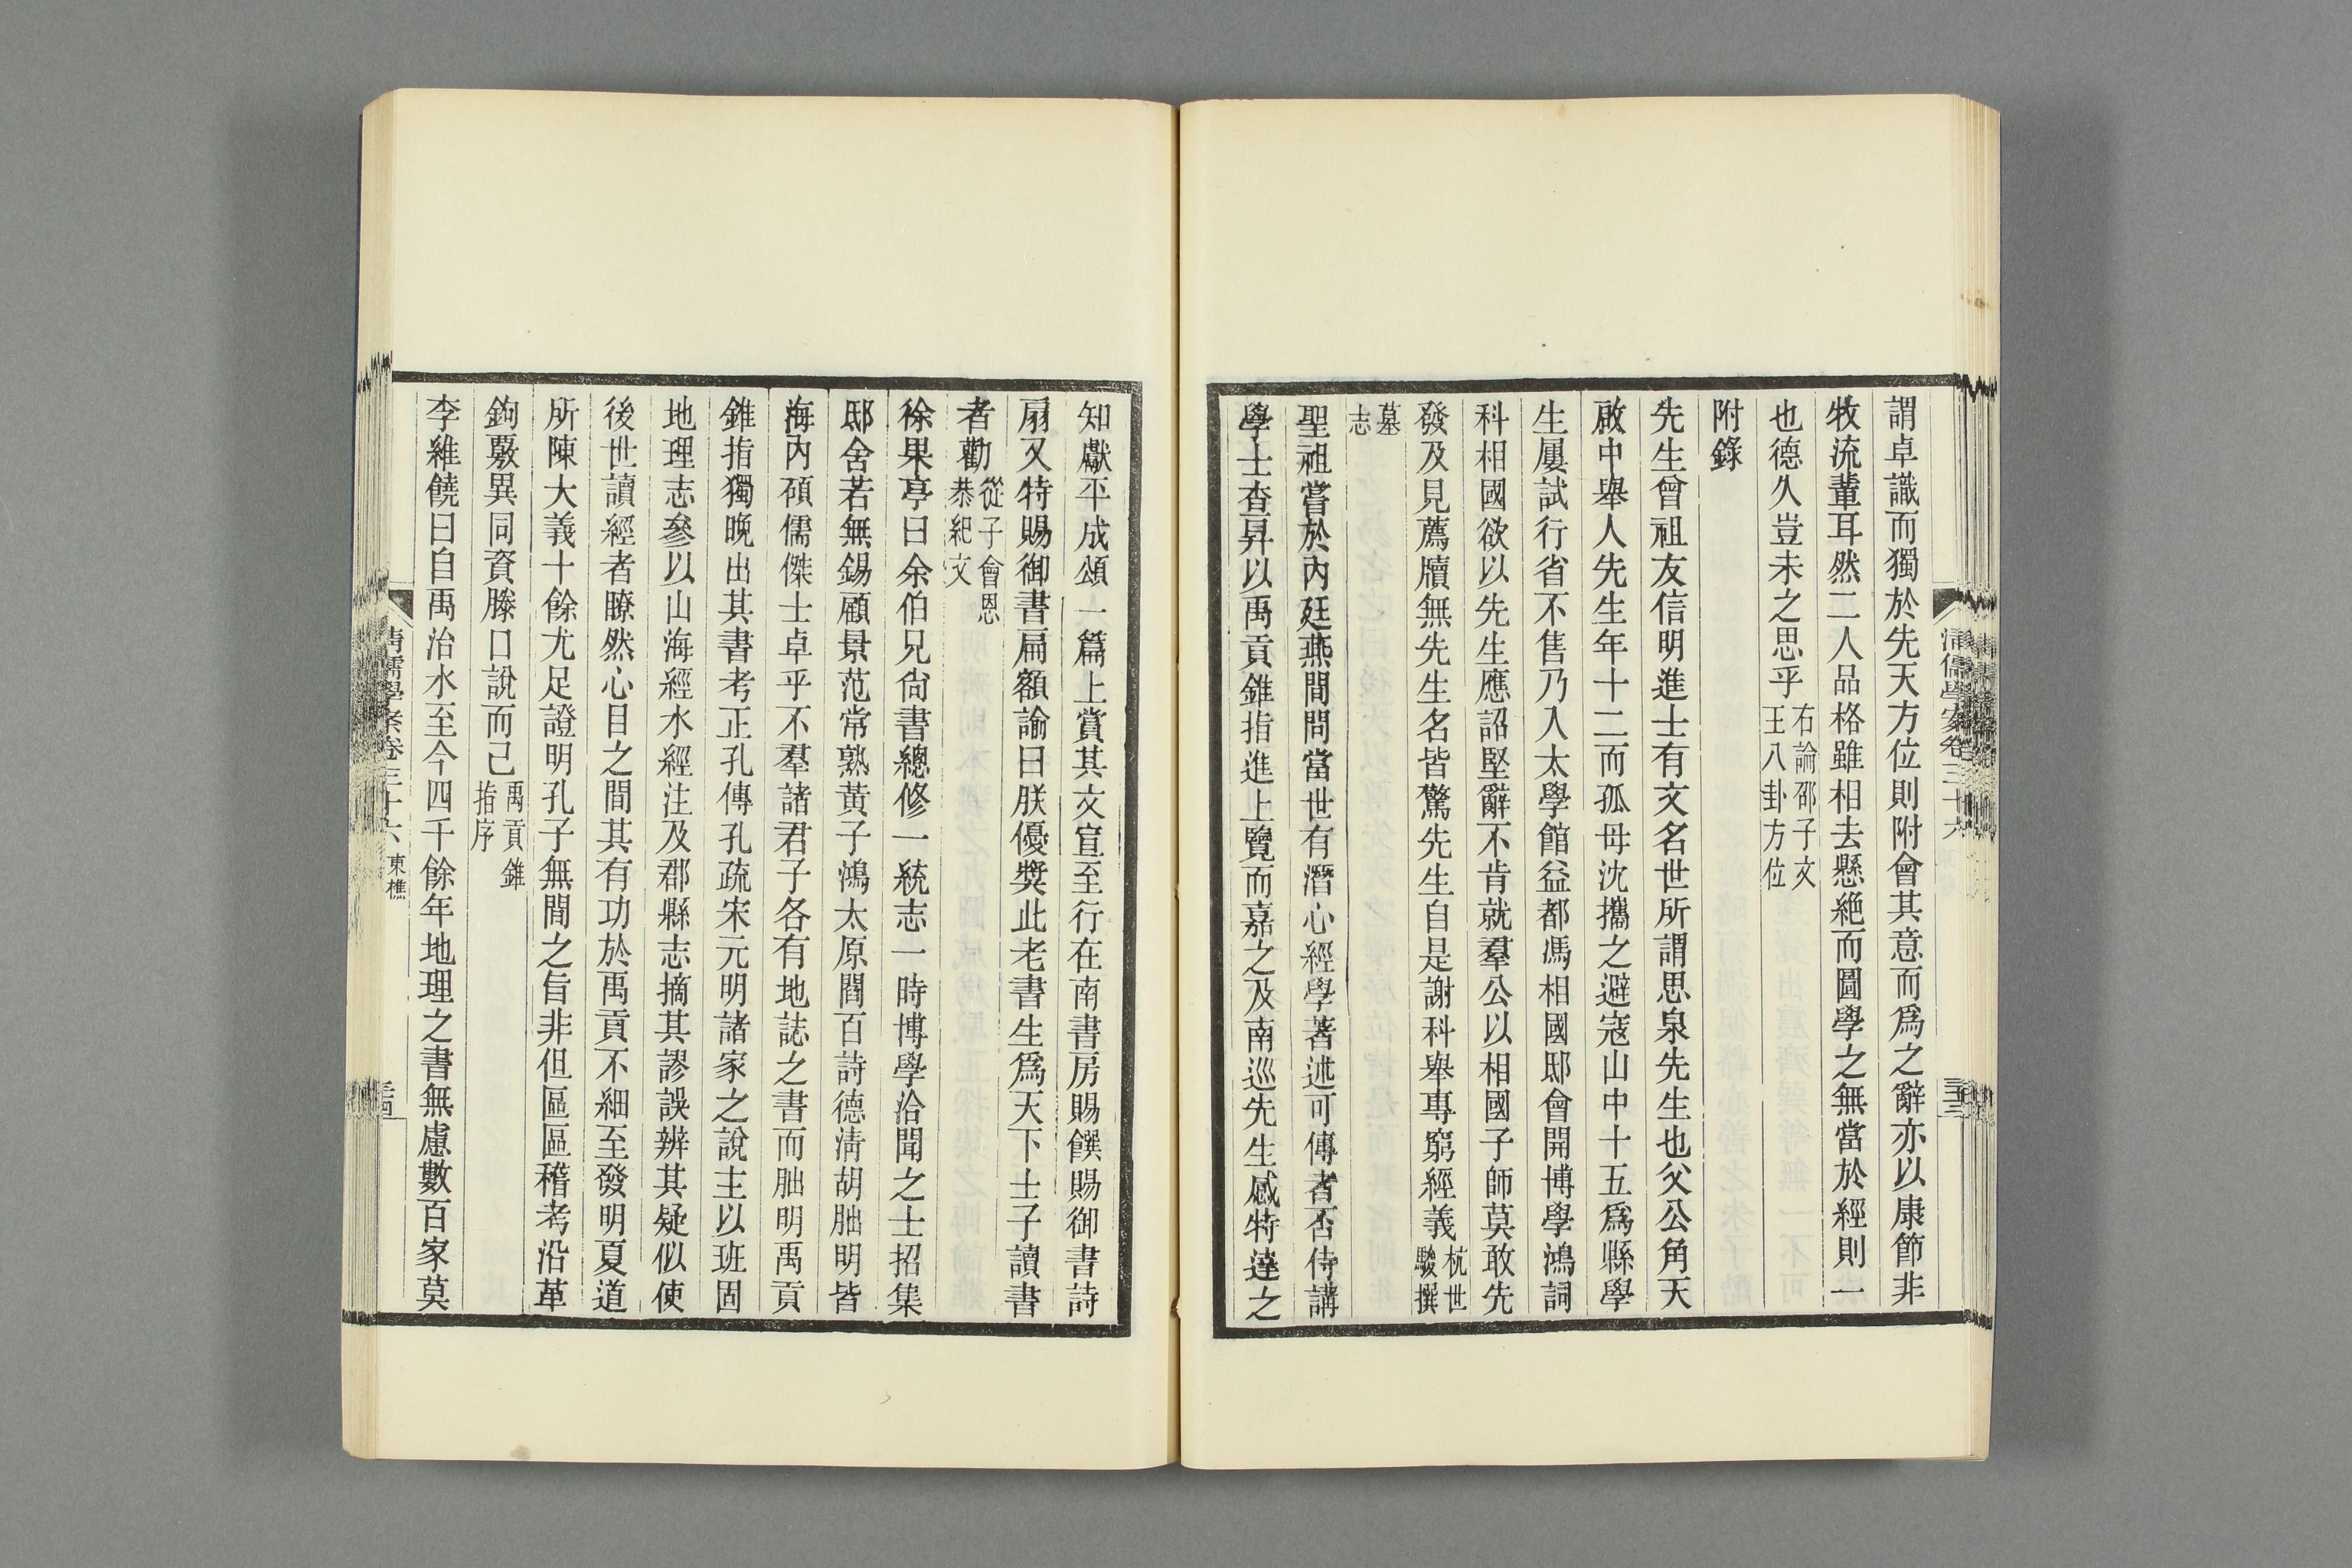 謂卓識而獨於先天方位則附會其意而爲之辭亦以康節非
牧流輩耳然二人品格雖相去懸絶而圖學之無當於經則一
也德久豈未之思乎右論邵子文王八卦方位
附錄
先生曾祖友信明進士有文名世所謂思泉先生也父公角天
啟中舉人先生年十二而孤母沈攜之避寇山中十五爲縣學
生屢試行省不售乃入太學館益都馮相國邸會開博學鴻詞
科相國欲以先生應詔堅辭不肯就羣公以相國子師莫敢先
發及見薦牘無先生名皆驚先生自是謝科舉專窮經義杭世駿撰
墓志
聖祖嘗於內廷燕間問當世有潛心經學著述可傳者否侍講
學士查昇以禹貢錐指進上覽而嘉之及南巡先生感特達之
清儒學案卷三十六
三十三
知獻平成頌一篇上賞其文宣至行在南書房賜饌賜御書詩
扇又特賜御書扁額諭曰朕優獎此老書生爲天下士子讀書
者勸從子會恩恭紀文
徐果亭曰余伯兄尙書總修一統志一時博學洽聞之士招集
邸舍若無錫顧景范常熟黃子鴻太原閻百詩德淸胡朏明皆
海內碩儒傑士卓乎不羣諸君子各有地誌之書而朏明禹貢
錐指獨晚出其書考正孔傳孔疏宋元明諸家之說主以班固
地理志參以山海經水經注及郡縣志摘其謬誤辨其疑似使
後世讀經者瞭然心目之間其有功於禹貢不細至發明夏道
所陳大義十餘尤足證明孔子無間之旨非但區區稽考沿革
鉤覈異同資滕口說而已禹貢錐指序
李維饒曰自禹治水至今四千餘年地理之書無慮數百家莫
清儒學案卷三十六 東樵
三十四